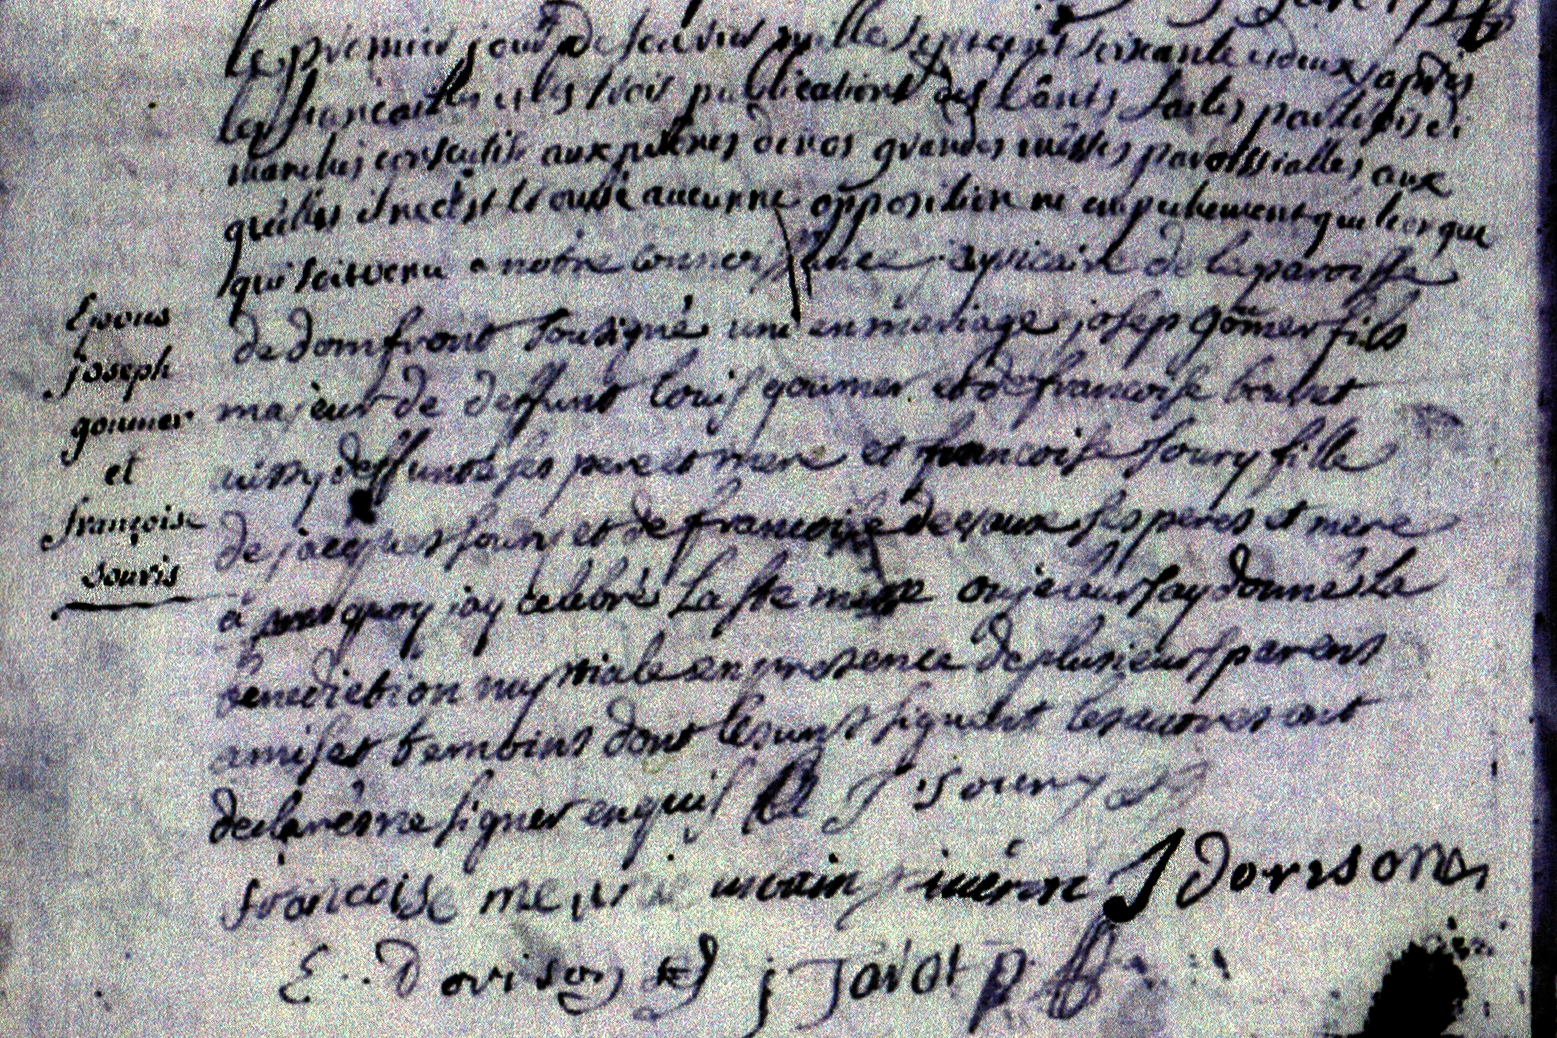 le premier jour de fevrier mille sept cent soixante et deux apres
les fiançailles et les trois publications des bants faites par trois di
manches consecutifs aux prônes de nos grandes messes paroissialles aux
quelles il ne c'est trouvé aucunne opposition ni empechement quelconque
qui soit venu a notre connoissance je vicaire de la paroisse
de domfront soussigné uni en mariage josep goumer fils
majeur de deffunt louis goumer et de francoise
aussy deffunte ses pere et mere et francoise soury fille
de jacques soury et de francoise ses peres et mere
à quoy jay celebré la ste messe ou je leur jay donné la
benediction nuptiale en presence de plusieurs parens
amis et temoins dont les uns signent les autres ont
declarés ne signer enquis J Soury
francoise J dorison
Epous
joseph
goumer
et
françoise
souris
E. dorison j javot